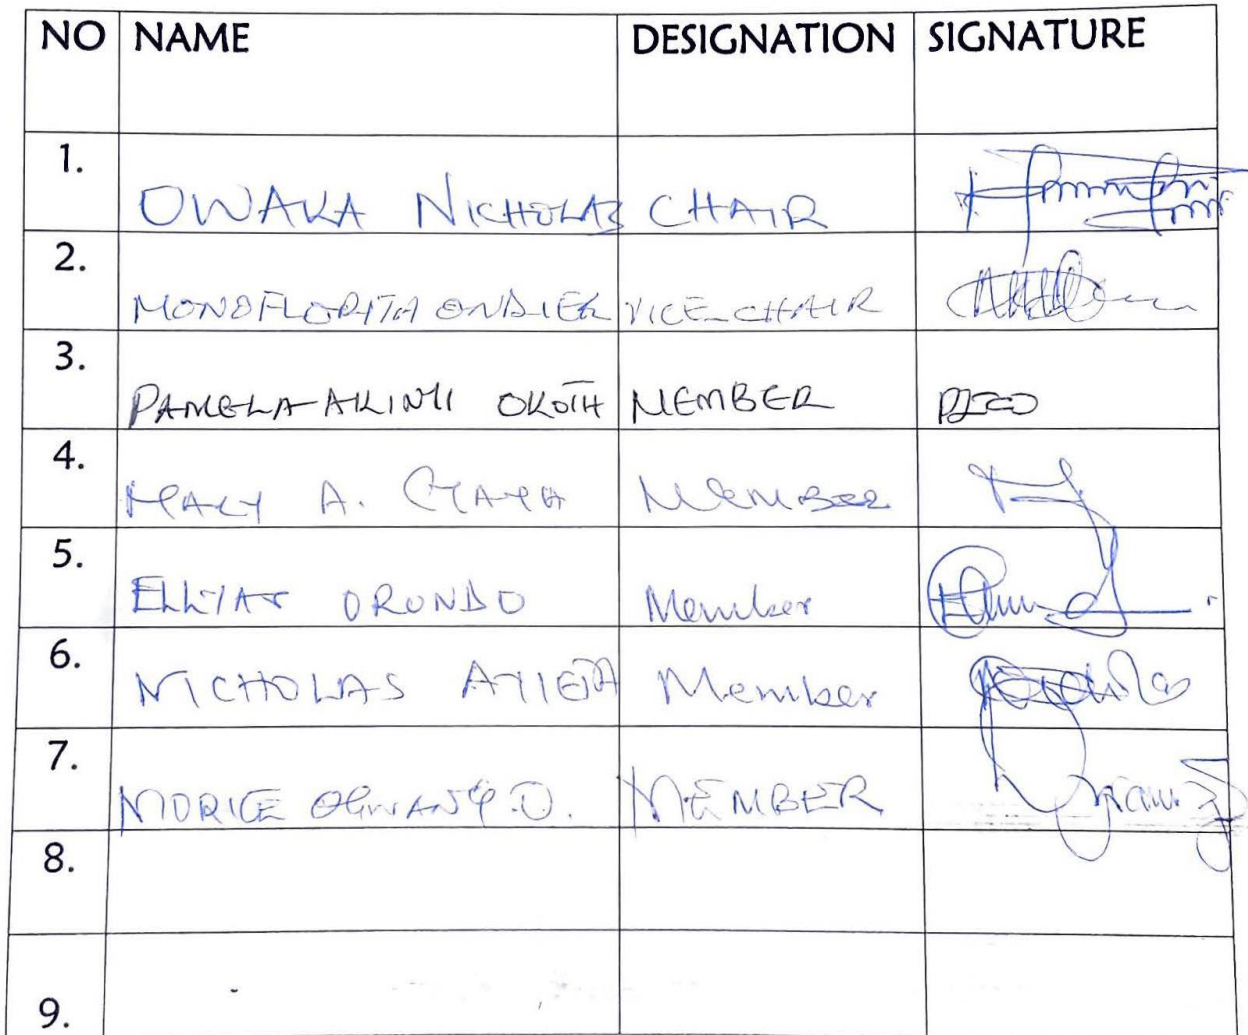 NO NAME DESIGNATION SIGNATURE
1. OWAKA NICHOLAS CHAIR
2. MONOFLORITA ONDIEK VICE-CHAIR
3. PAMELA AKINYI OKOTH MEMBER
4. MARY A. MEMBER
5. ELLYAS ORONDO Member
6. NICHOLAS ATIENO Member
7. MORICE OGWANG .O. MEMBER
8.
9.